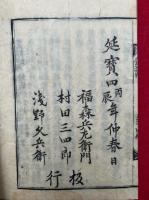 延寳四丙辰年仲春日
福森兵左衛門
村田三四郎
浅野久兵衛
板行